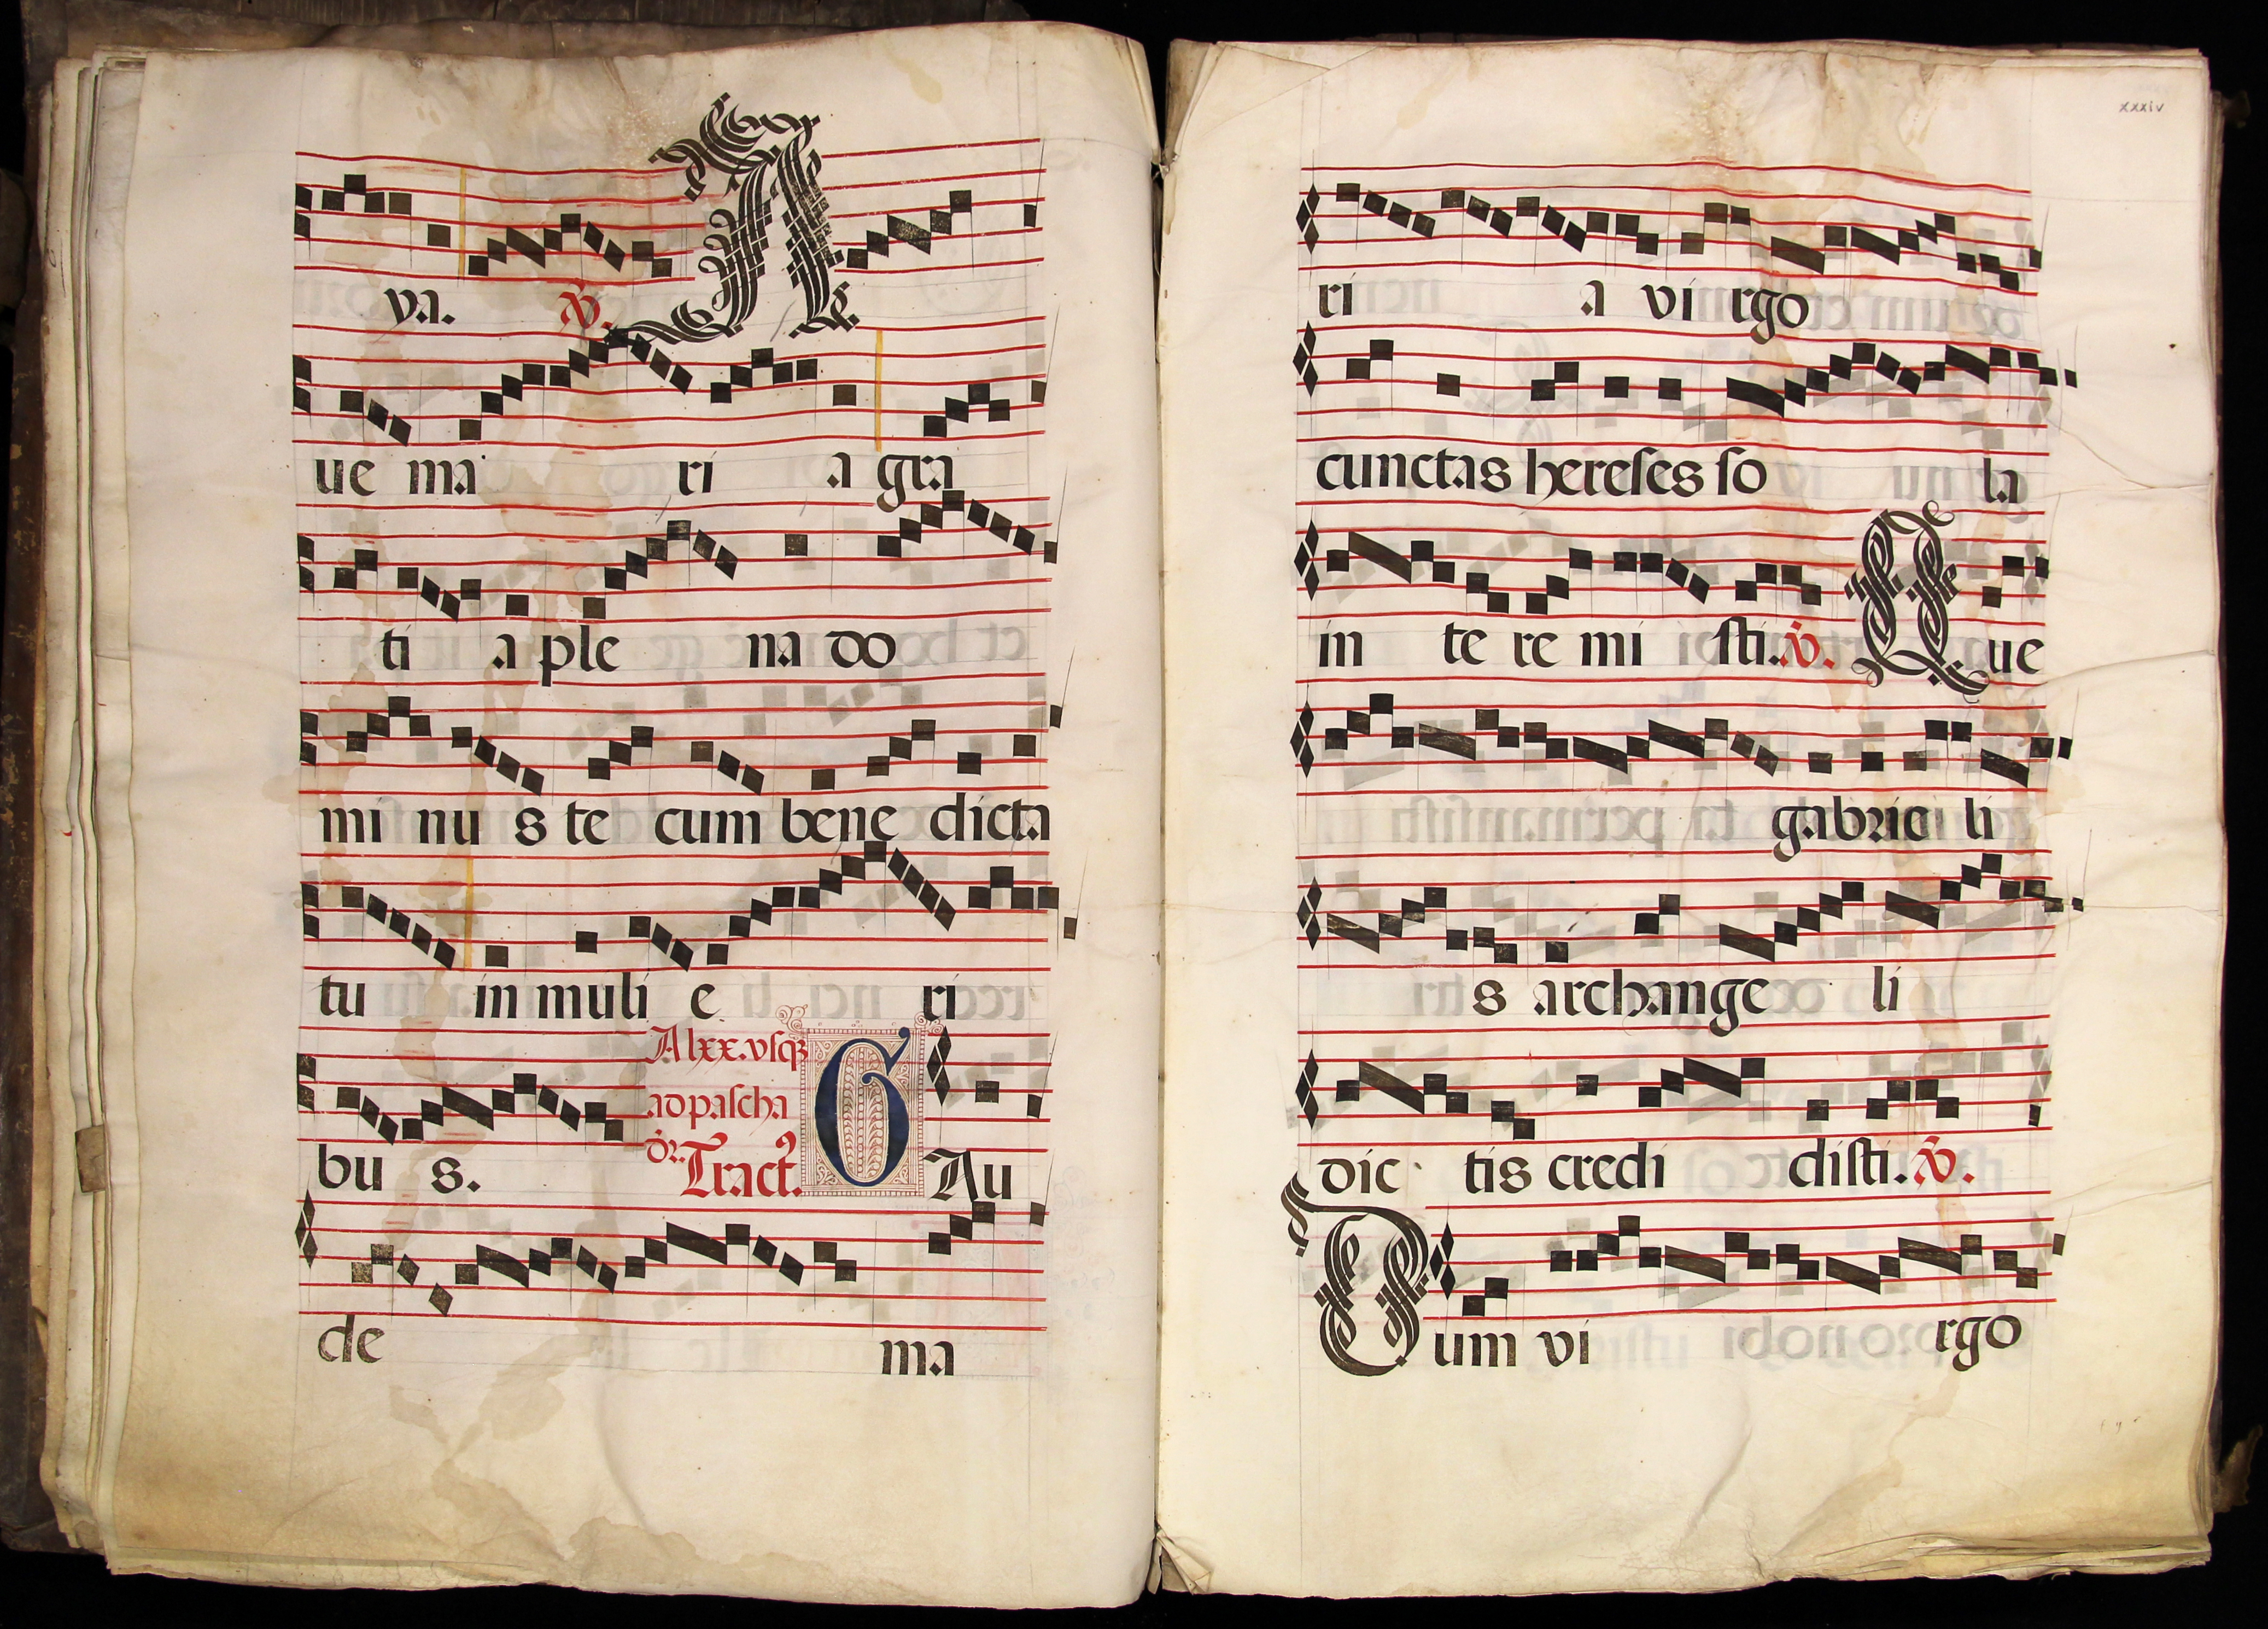 ya. ℣. A
ue ma ri a gra
ti a ple na do
mi nu s te cum bene dicta
tu in muli e ri
A lxx. vsq3
ad pascha
bu s. dr. Tract9. G Au
de ma
xxxiv
ri a virgo
cunctas hereses so la
in te re mi sti. ℣. Q ue
gabrie li
s archange li
dic tis credi disti. ℣.
D um vi rgo